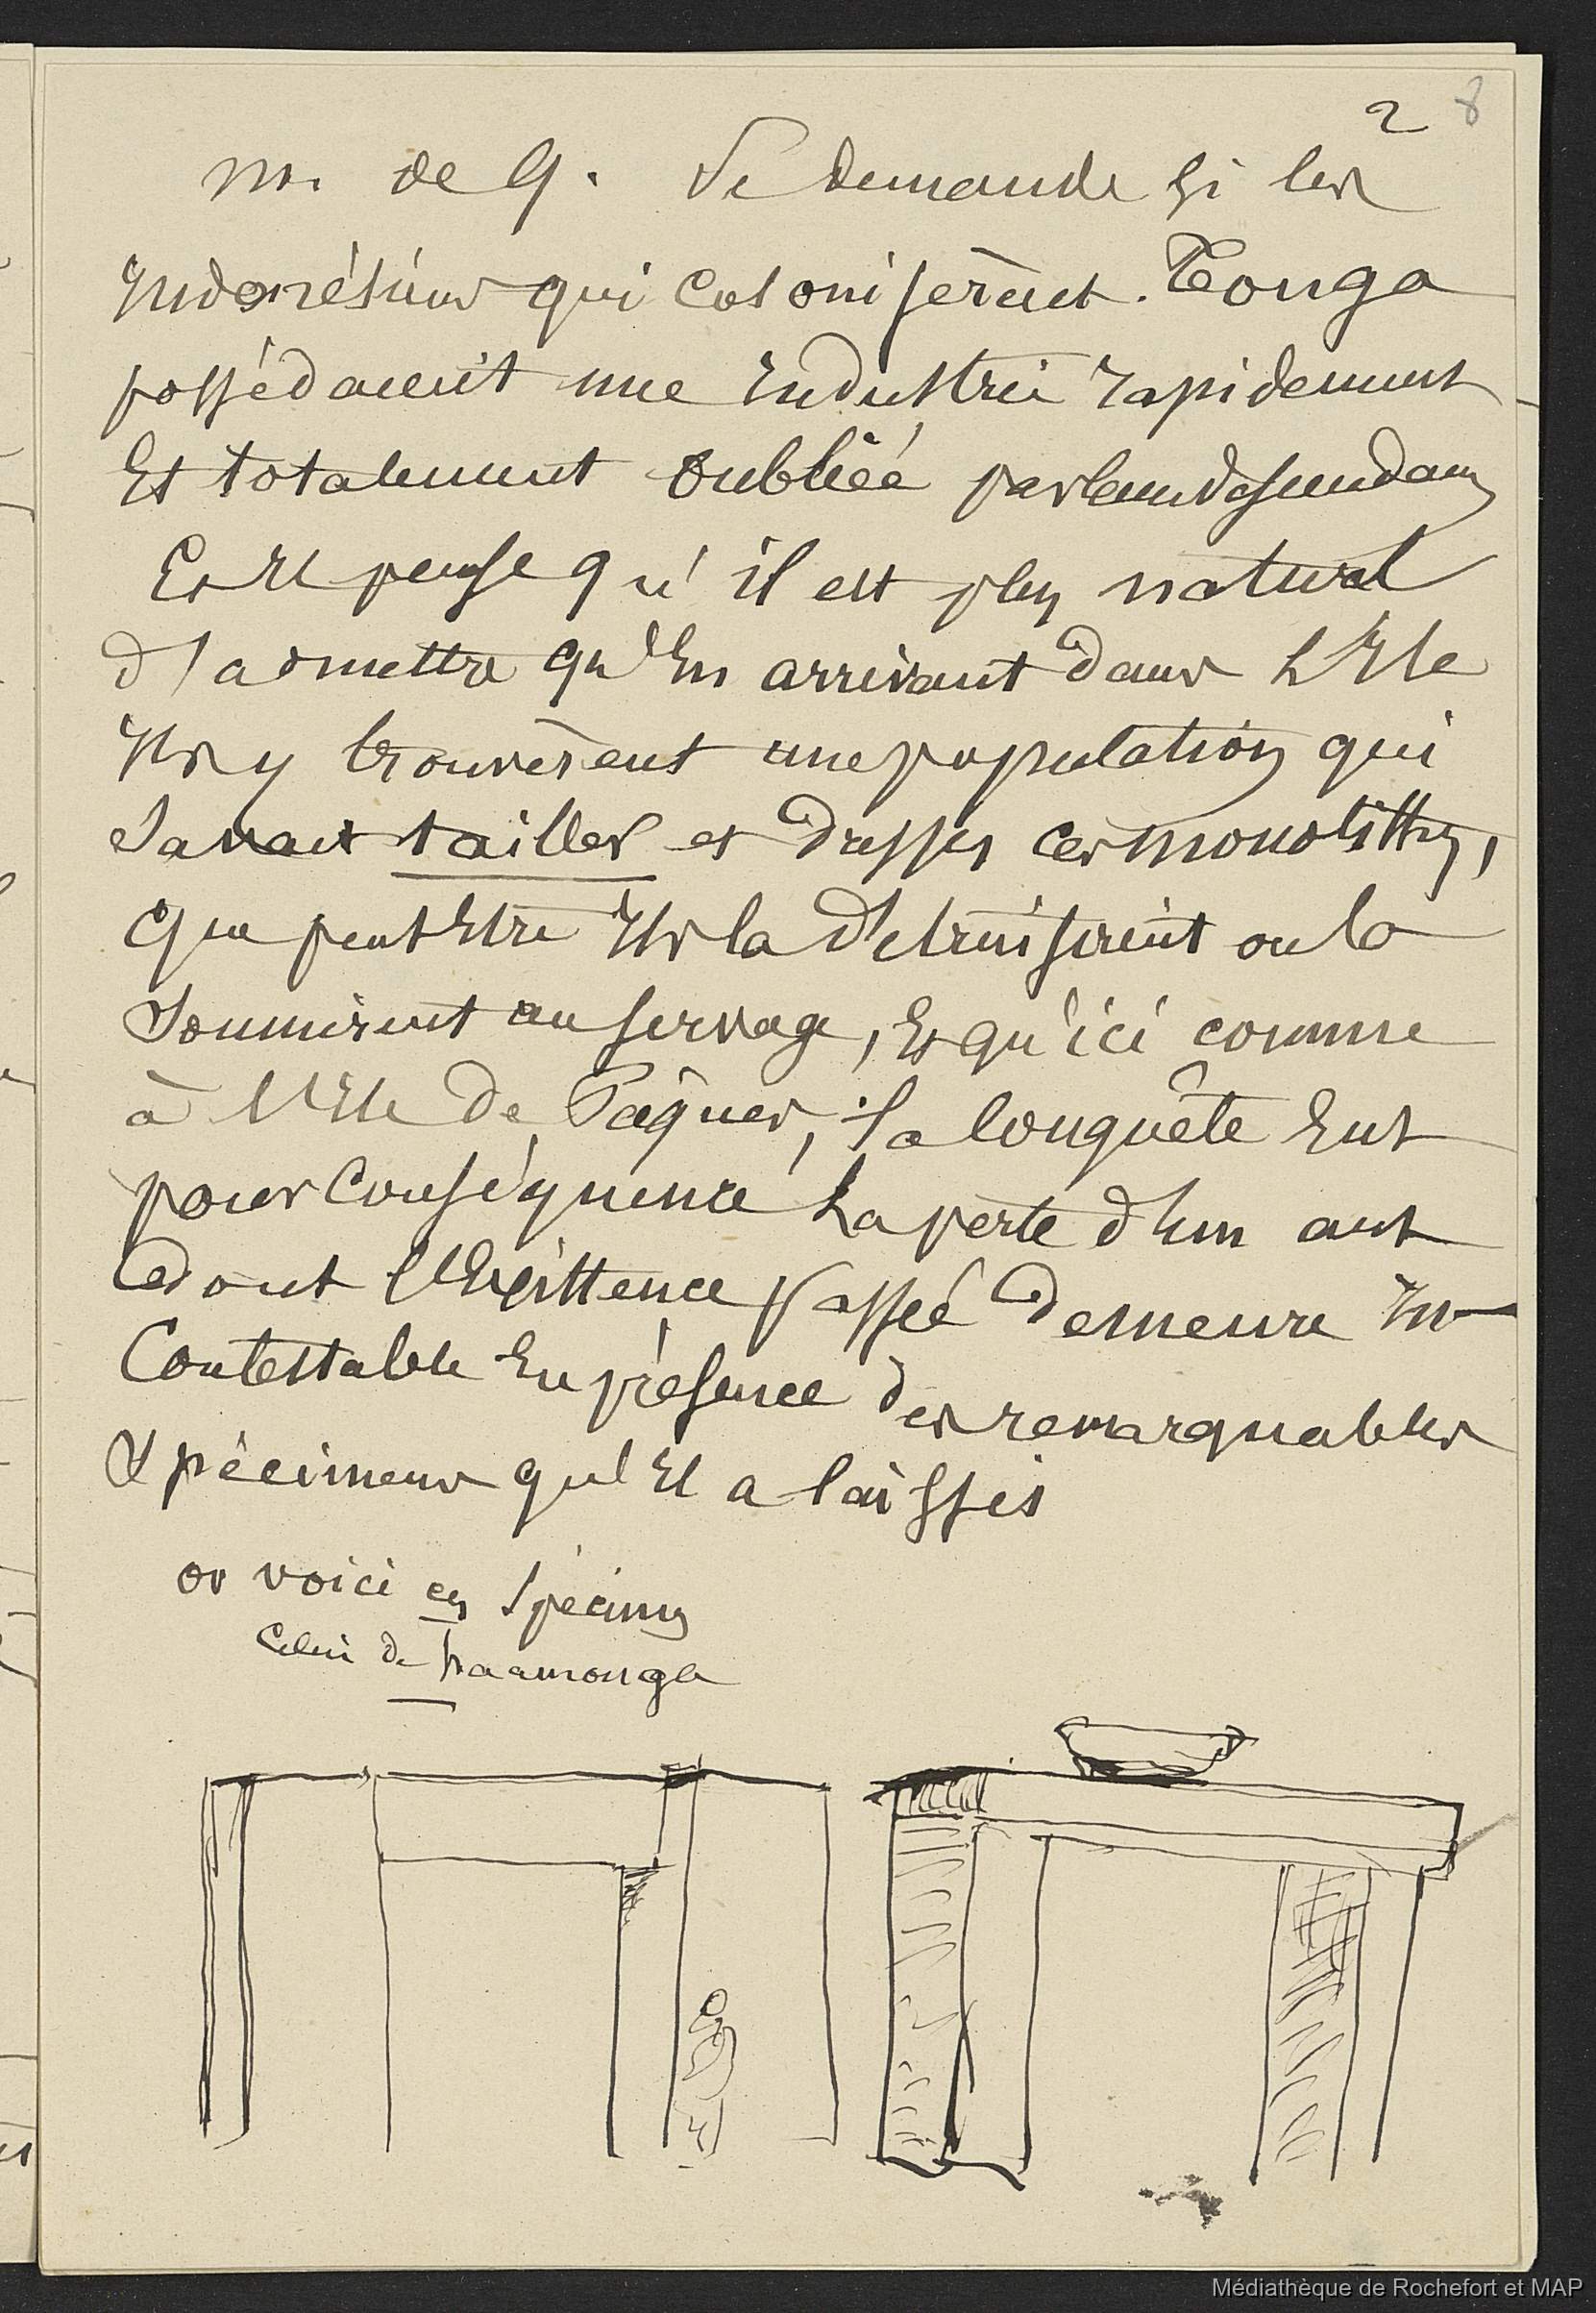 2 8
M. de Q. Se demande si les
Indonésiens qui colonisèrent Tonga
possédaient une industrie rapidement
Et totalement oubliée par leurs descendants
Et Il pense qu'il est plus naturel
d'admettre qu'En arrivant dans L'Ile
Ils y trouvèrent une population qui
Savait tailler et dresser ces monolithes,
Que peut Etre Ils la détruisirent ou la
Soumirent au servage, Et qu'ici comme
à l'Ile de Pâques, la Conquête Eut
pour Conséquence La perte d'un art
dont l'Existence passée demeure In
Contestable En présence des remarquables
Spécimens qu'Il a laissés
or voici ces Spécimens
Celui de haamonga
Médiathèque de Rochefort et MAP